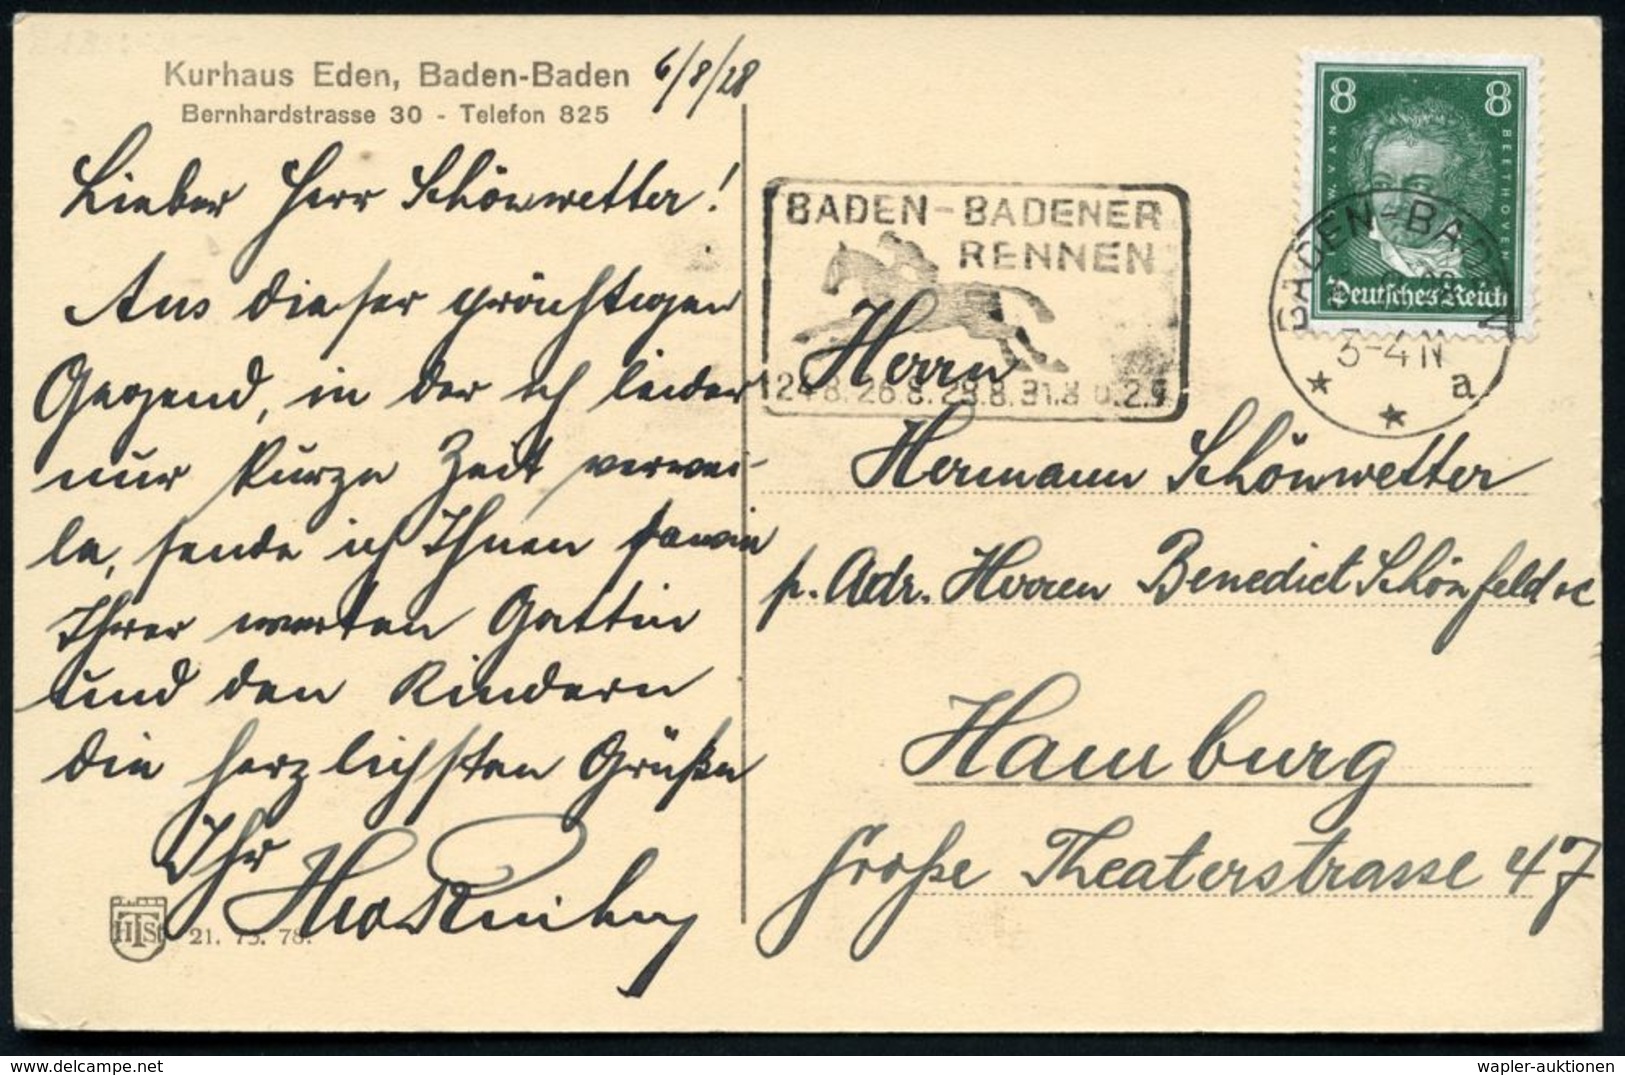 Kurhaus Eden, Baden-Baden
Bernhardstrasse 30 - Telefon 825
6/8/28
Lieber Herr Schönwetter!
Aus dieser prächtigen
Gegend, in der ich leider
nur kurze Zeit verwei-
le, sende ich Ihnen sowie
Ihrer werten Gattin
und den Kindern
die herzlichsten Grüße
Ihr
HTSt
21. 75. 78.
BADEN-BADENER
RENNEN
24.8. 26.8. 29.8. 31.8 u. 2.9
8 8
L. VAN
BEETHOVEN
Deutsches Reich
BADEN-BADEN
3-4 N
* * a
Herrn
Hermann Schönwetter
p. Adr. Herren Benedict Schönfeld & C
Hamburg
Große Theaterstrasse 47
wapler-auktionen